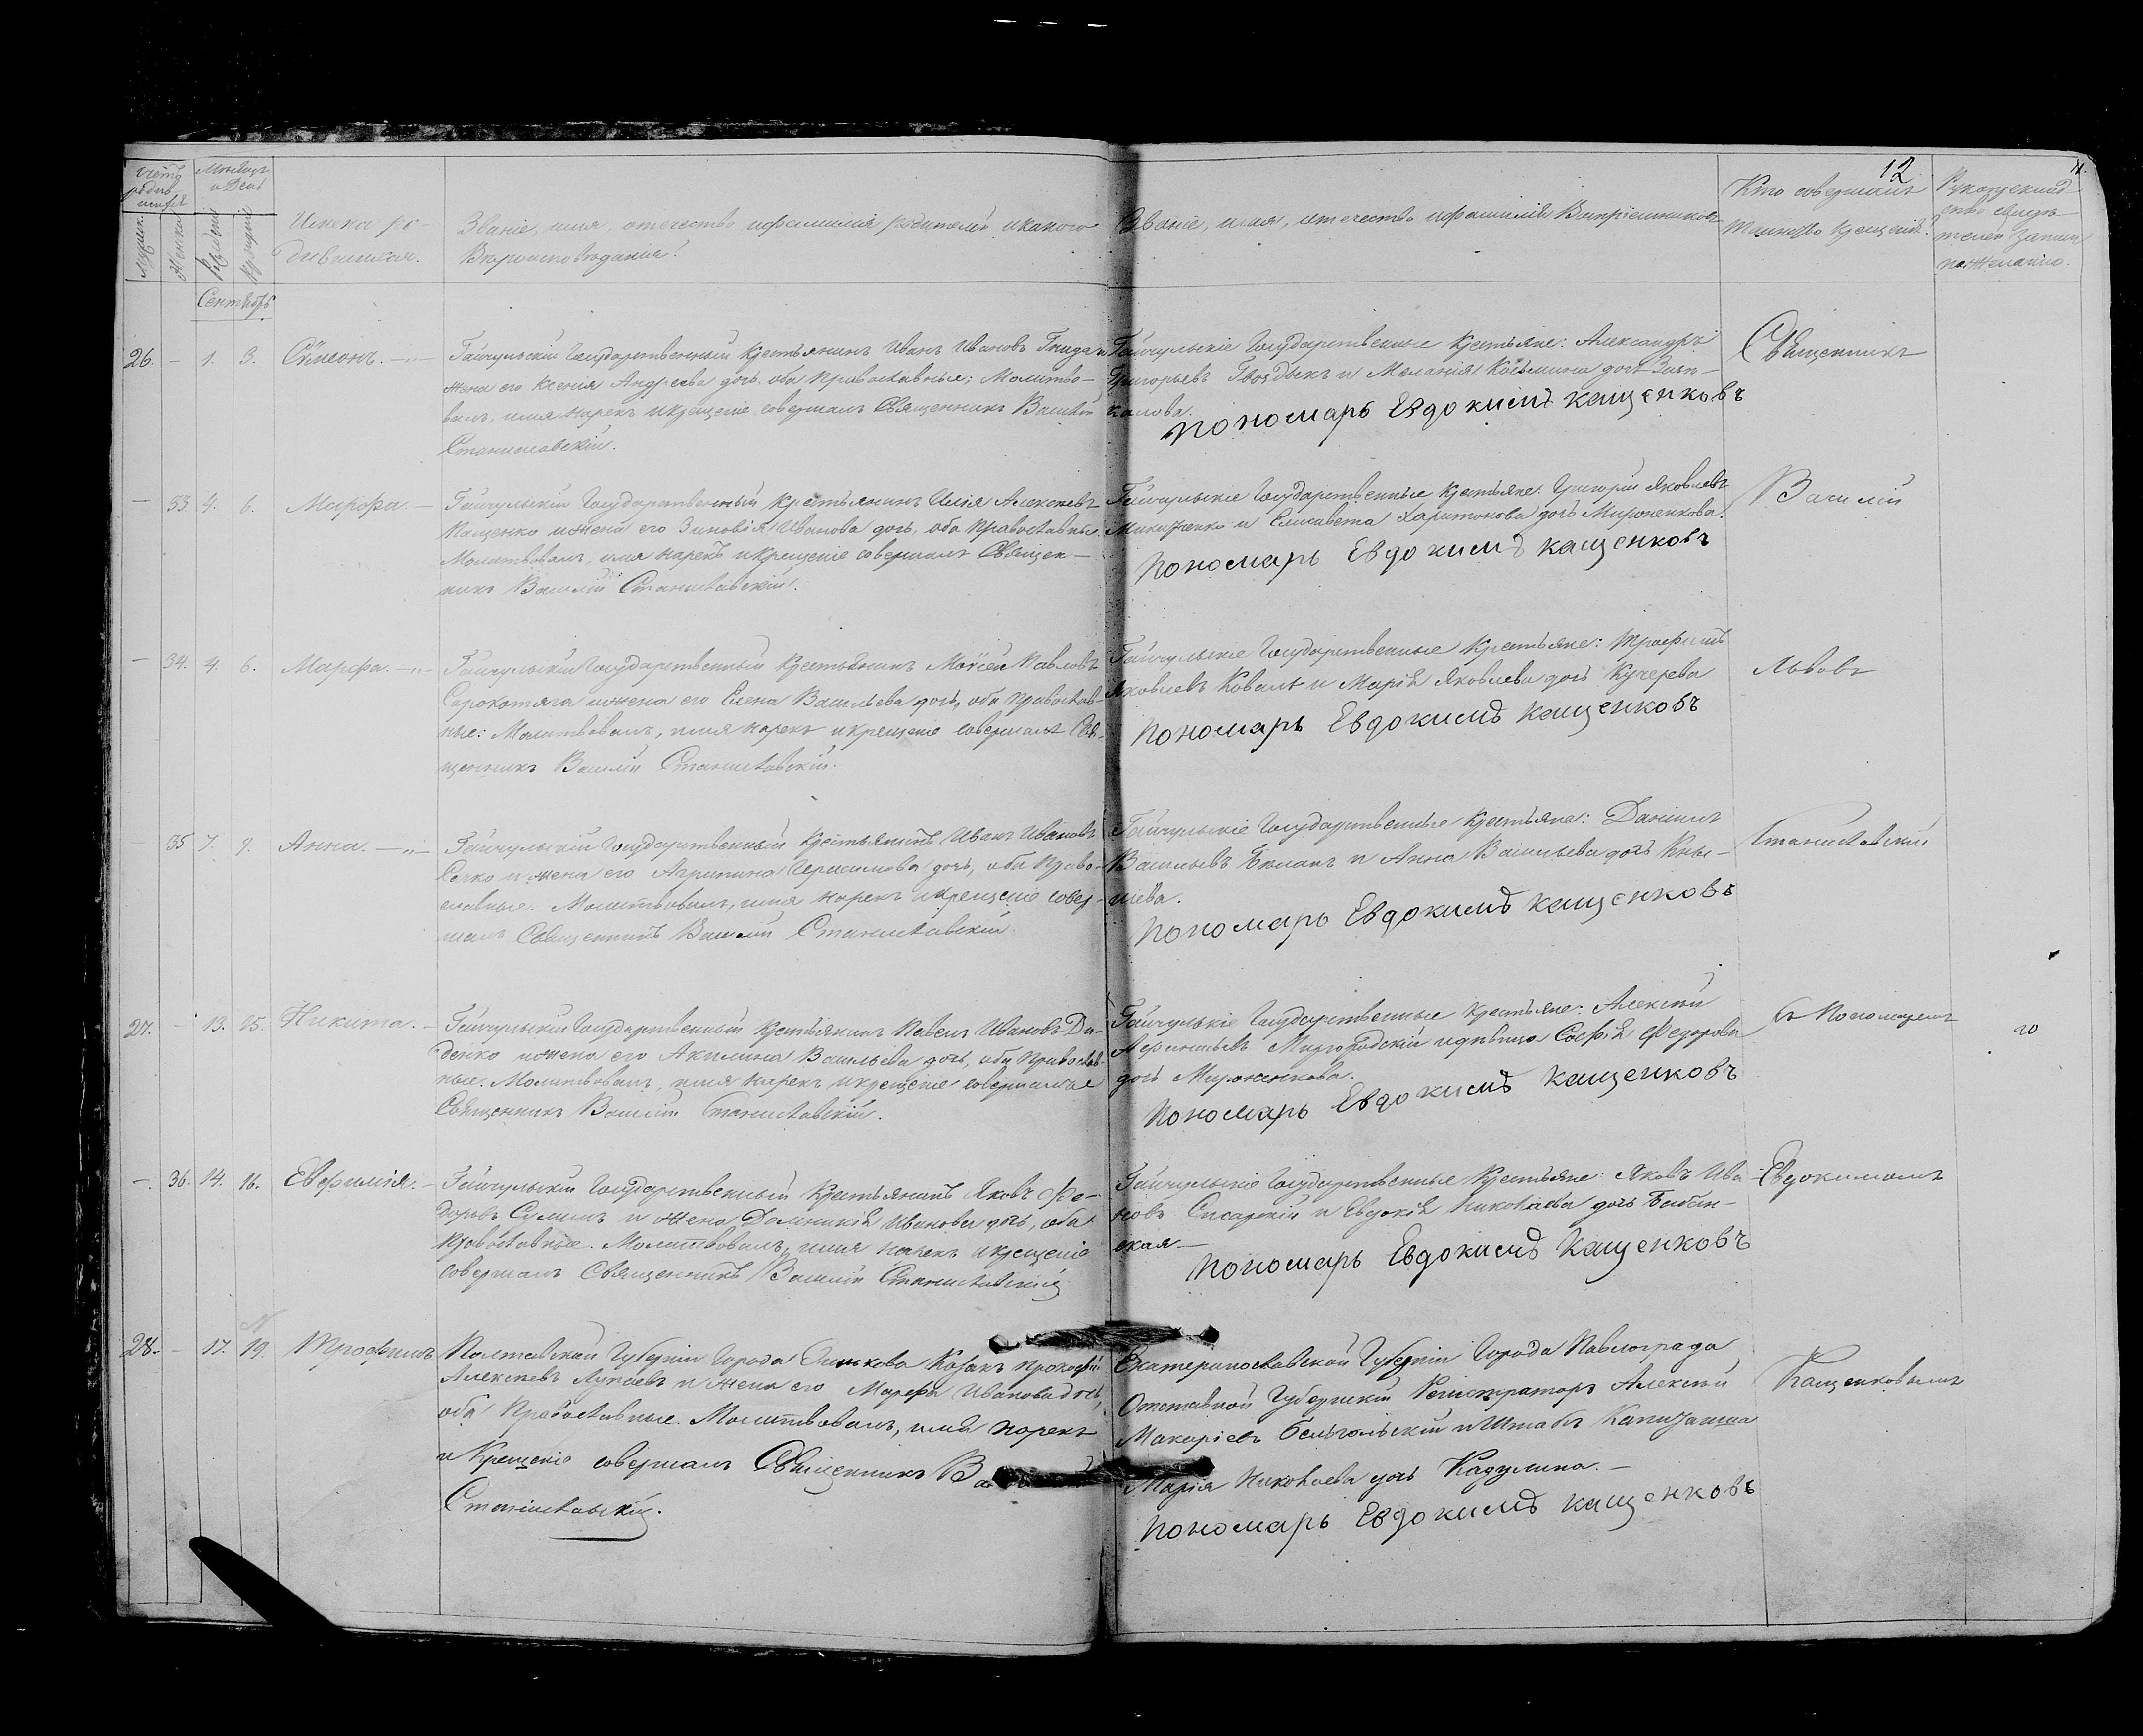 12
Счетъ родив-шихся
Мѣсяцъ и День
Мужеск.
Женска
Рожденія
Крещенія
Имена ро-
дившихся.
Званіе, имя, отечество и фамилія родителей и какого
Вѣроисповѣданія.
Званіе, имя, отечество и фамилія Воспріемниковъ
Кто совершалъ
Таинство Крещенія.
Рукоприклад-
ство свидѣ-
телей записи
по желанію.
Сентябрь
26. – 1. 3. Сѵмеонъ.
Гайчульскій Государственный Крестьянинъ Иванъ Ивановъ Гнида и
жена его Ксенія Андреева дочь, оба Православные; Молитво-
валъ, имя нарекъ и крещеніе совершалъ Священникъ Василій
Станиславскій.
Гайчульскіе Государственные Крестьяне: Александръ
Григорьевъ Гвоздыкъ и Меланія Косьмина дочь
калова.
Пономарь Евдокимъ Кащенковъ
Священникъ
– 33. 4. 6. Марфа. –
Гайчульскій Государственный Крестьянинъ Илія Алексѣевъ
Кащенко и жена его Зиновія Иванова дочь, оба Православные
Молитвовалъ, имя нарекъ и крещеніе совершалъ Священ-
никъ Василій Станиславскій.
Гайчульскіе Государственные Крестьяне: Григорій Яковлевъ
и Елисавета Харитонова дочь Мироненкова.
Пономарь Евдокимъ Кащенковъ
Василій
– 34. 4. 6. Марфа.
Гайчульскій Государственный Крестьянинъ Моѵсей Павловъ
Сорокотяга и жена его Елена Васильева дочь, оба Православ-
ные: Молитвовалъ, имя нарекъ и крещеніе совершалъ Свя-
щенникъ Василій Станиславскій.
Гайчульскіе Государственные Крестьяне: Трофимъ
Яковлевъ Коваль и Марія Яковлева дочь Кучерева
Пономарь Евдокимъ Кащенковъ
Львовъ
– 35 7. 9. Анна.
Гайчульскій Государственный Крестьянинъ Иванъ Ивановъ
Сачко и жена его Агрипина Герасимова дочь, оба Право-
славные. Молитвовалъ, имя нарекъ и крещеніе совер-
шалъ Священникъ Василій Станиславскій.
Гайчульскіе Государственные Крестьяне: Даніилъ
Васильевъ и Анна Васильева дочь Кны-
шева.
Пономарь Евдокимъ Кащенковъ
Станиславскій
27. – 13. 15. Никита. –
Гайчульскій Государственный Крестьянинъ Павелъ Ивановъ Ди-
денко и жена его Акилина Васильева дочь, оба Православ-
ные. Молитвовалъ, имя нарекъ и крещеніе совершалъ
Священникъ Василій Станиславскій.
Гайчульскіе Государственные Крестьяне: Алексѣй
Афанасьевъ Миргородскій и дѣвица Софія Федорова
дочь Мироненкова.
Пономарь Евдокимъ Кащенковъ
съ Пономаремъ
–. 36. 14. 16. Евфимія. –
Гайчульскій Государственный Крестьянинъ Яковъ Фе-
доровъ Сулимъ и жена Домникія Иванова дочь, оба
Православные. Молитвовалъ, имя нарекъ и крещеніе
совершалъ Священникъ Василій Станиславскій
Гайчульскіе Государственные Крестьяне: Яковъ Ива-
новъ и Евдокія Николаева дочь Бабан-
ская. –
Пономарь Евдокимъ Кащенковъ
Евдокимомъ
28. – 17. 19. Трофимъ
Полтавской Губерніи Города Зинькова Козакъ Прокофій
Алексѣевъ и жена его Марфа Иванова дочь,
оба Православные. Молитвовалъ, имя нарекъ
и Крещеніе совершалъ Священникъ
Станиславскій.
Екатеринославской Губерніи Города Павлограда
Отставной Губернскій Регистраторъ Алексѣй
Макаріевъ Бельгольскій и Штабъ Капитанша
Марія Николаева дочь Кадулина. –
Пономарь Евдокимъ Кащенковъ
Кащенковымъ